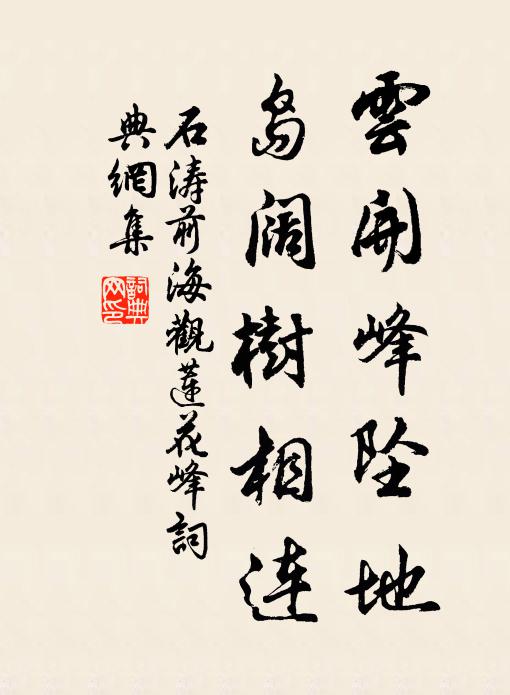 雲開峰墜地
島闊樹相連
石涛前海觀蓮花峰詞
典網集
詞典网印